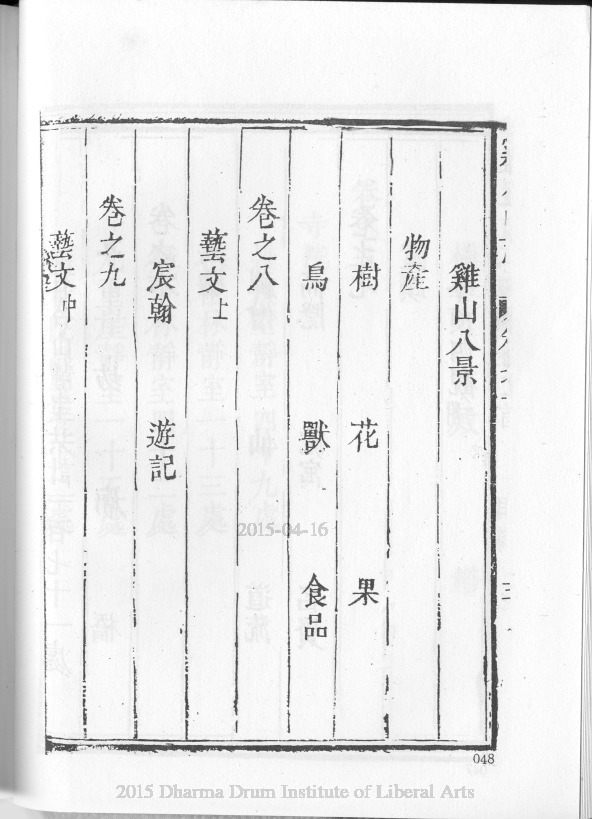 雞山八景
物產
樹 花 果
鳥 獸 食品
卷之八
藝文上
宸翰 遊記
卷之九
藝文中
2015-04-16
048
2015 Dharma Drum Institute of Liberal Arts